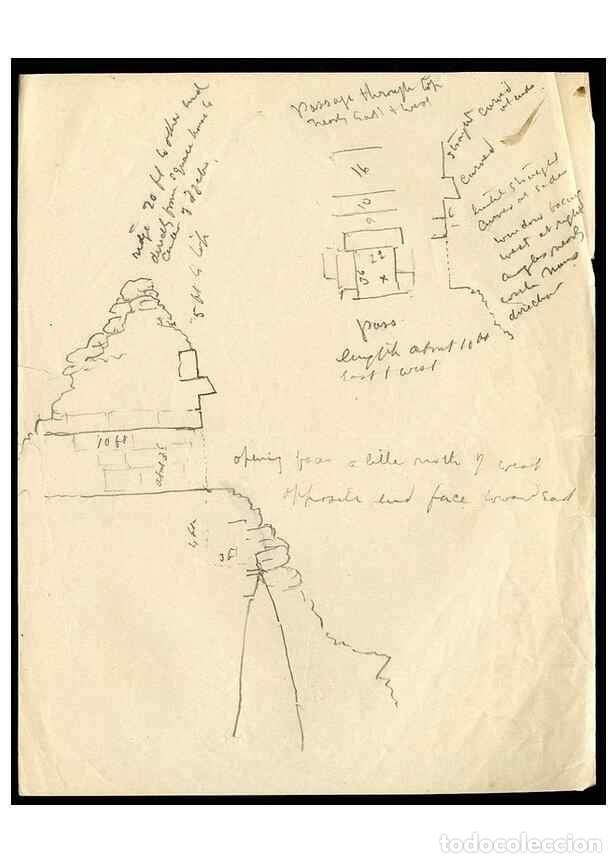 Passage through top
nearly East & West
ridge 20 ft to other end
directly from square house to
center of
5 ft to top
straight curved
at ends
curved
until straight
curves at sides
window facing
west at right
angles nearly
with
direction
16
10
6
22
36 x
1 ft
pass
length about 10 ft
East & West
10 ft
about 3 ft
opening faces a little north of west
opposite end face toward East
4 ft
3 ft
todocoleccion